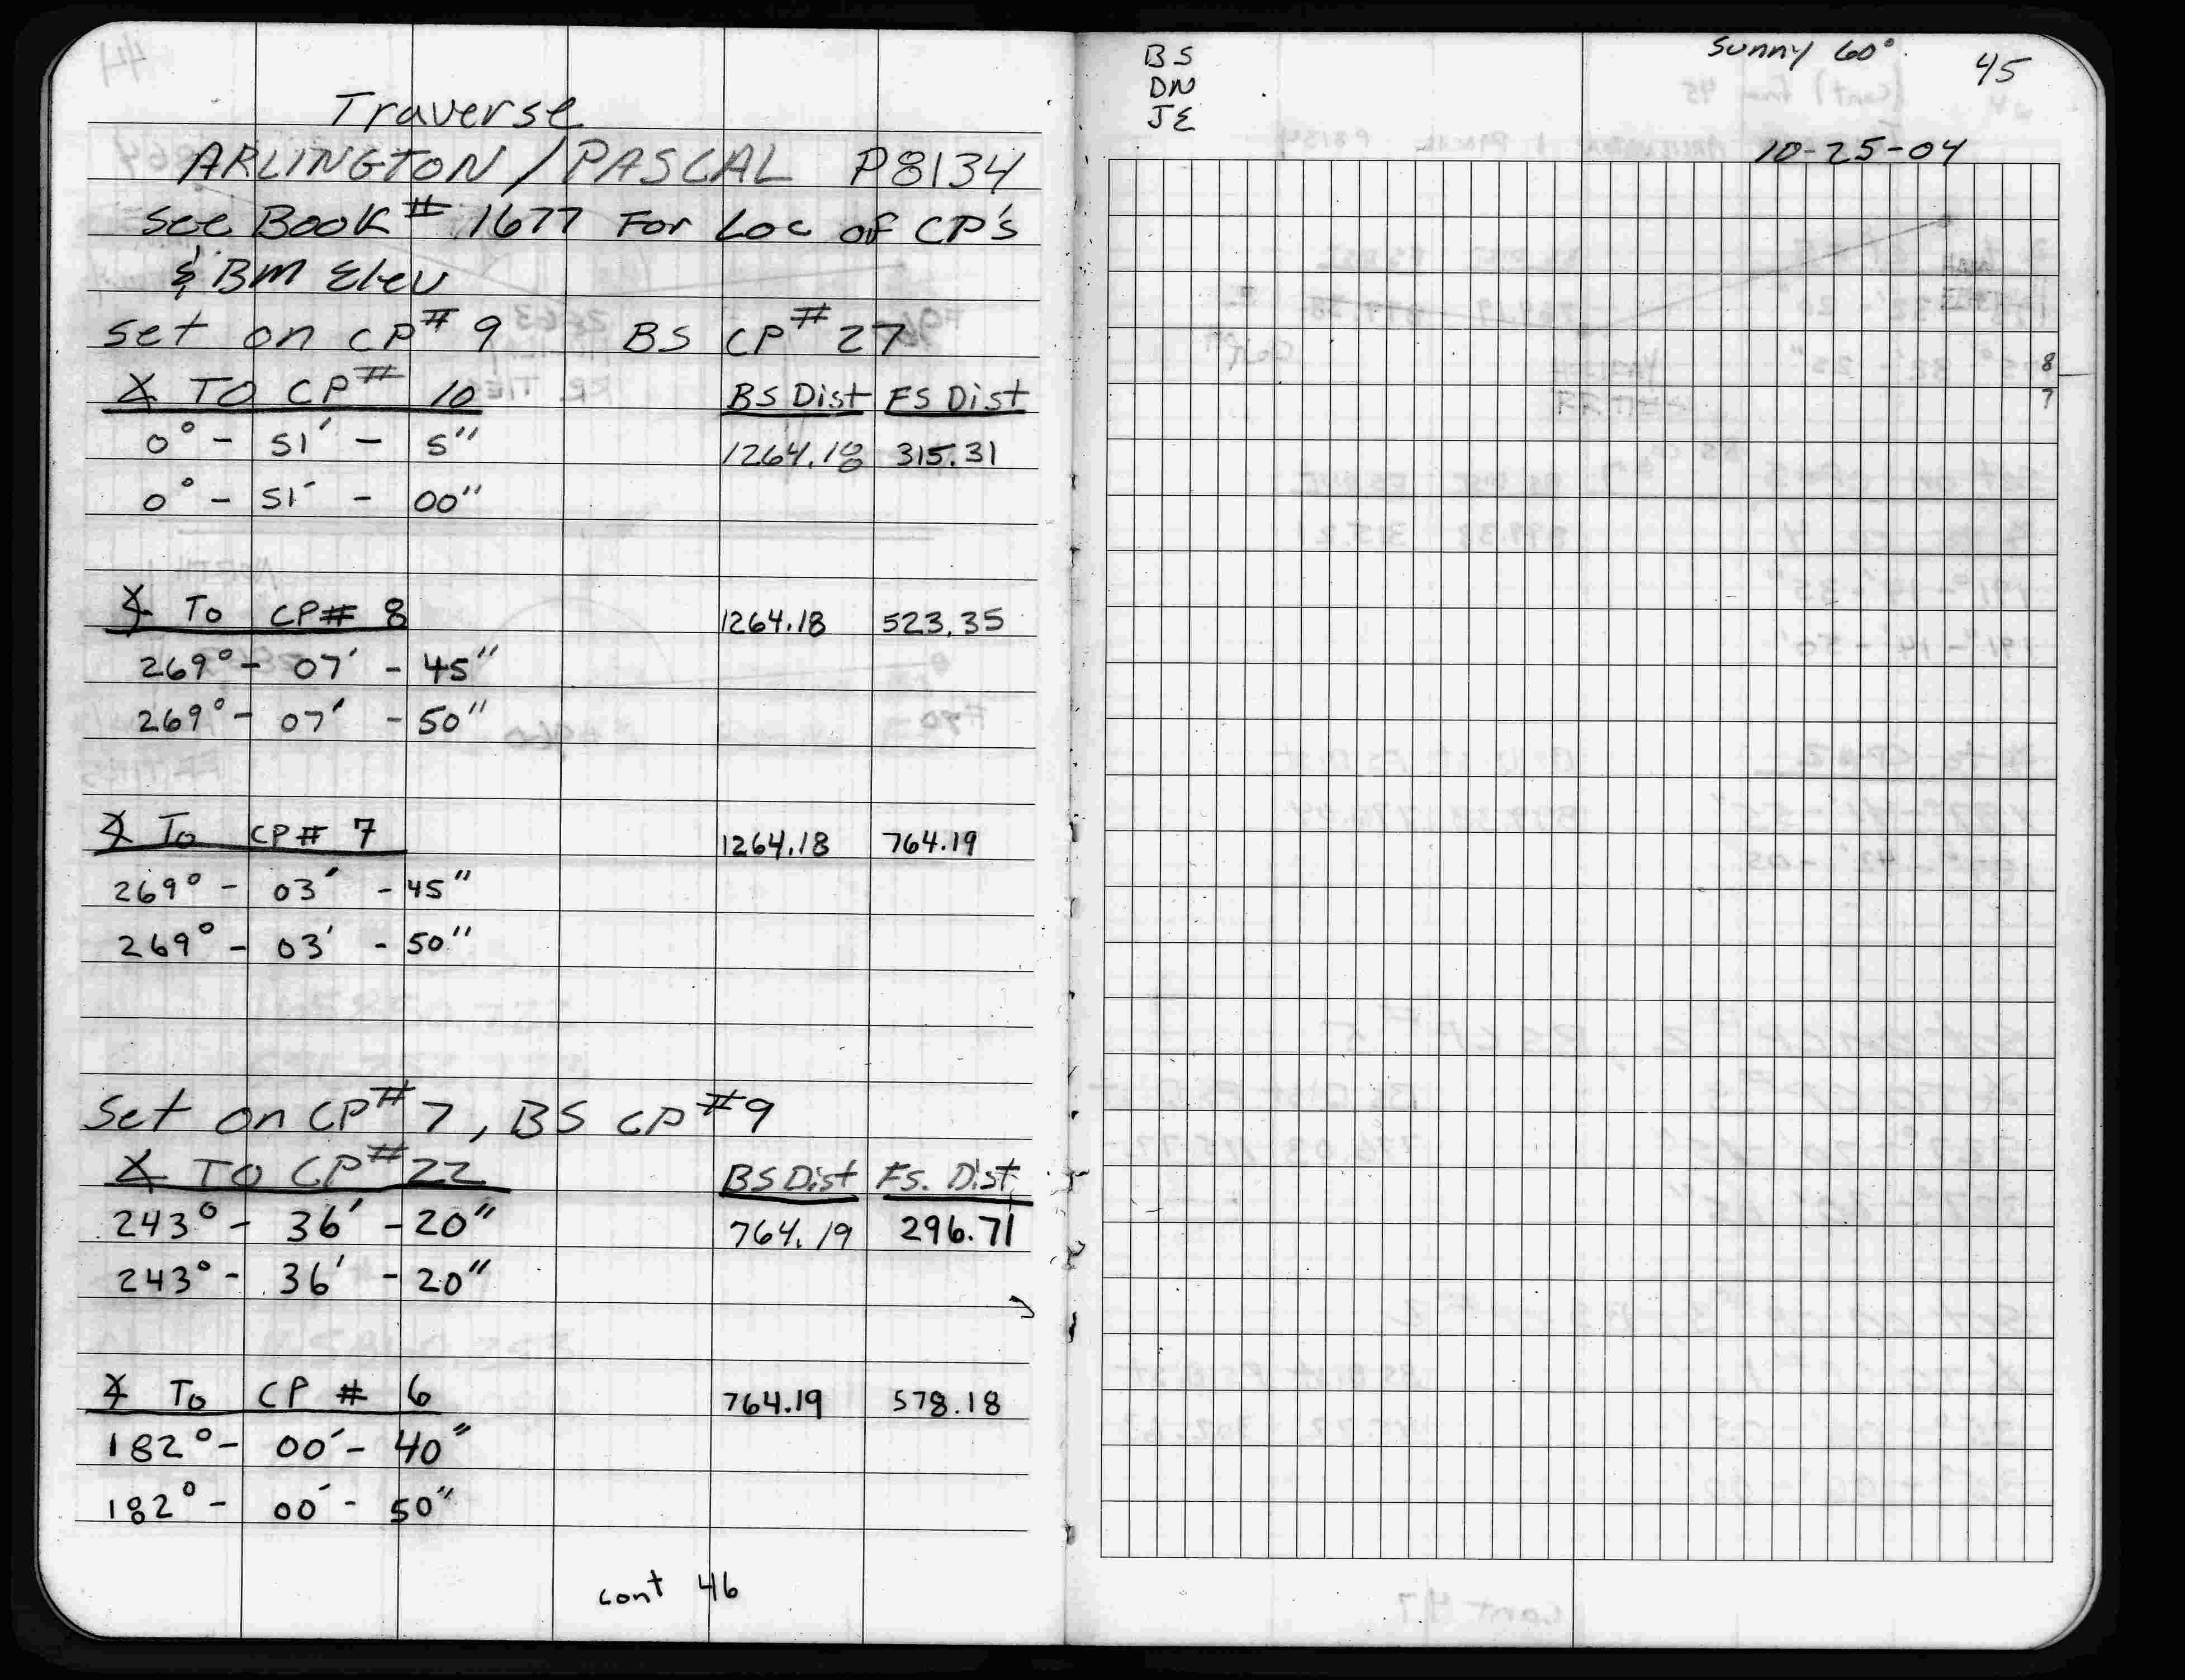 Traverse
ARLINGTON / PASCAL P8134
See Book # 1677 For Loc of CP's
& BM Elev
Set on CP# 9 BS CP# 27
∡ TO CP# 10 BS Dist FS Dist
0° - 51' - 5" 1264.18 315.31
0° - 51' - 00"
∡ To CP# 8 1264.18 523.35
269° - 07' - 45"
269° - 07' - 50"
∡ To CP# 7 1264.18 764.19
269° - 03' - 45"
269° - 03' - 50"
Set on CP# 7, BS CP #9
∡ TO CP# 22 BS Dist Fs. Dist
243° - 36' - 20" 764.19 296.71
243° - 36' - 20"
∡ To CP # 6 764.19 578.18
182° - 00' - 40"
182° - 00' - 50"
cont 46
BS
DN
JE
Sunny 60°
45
10-25-04
8
7